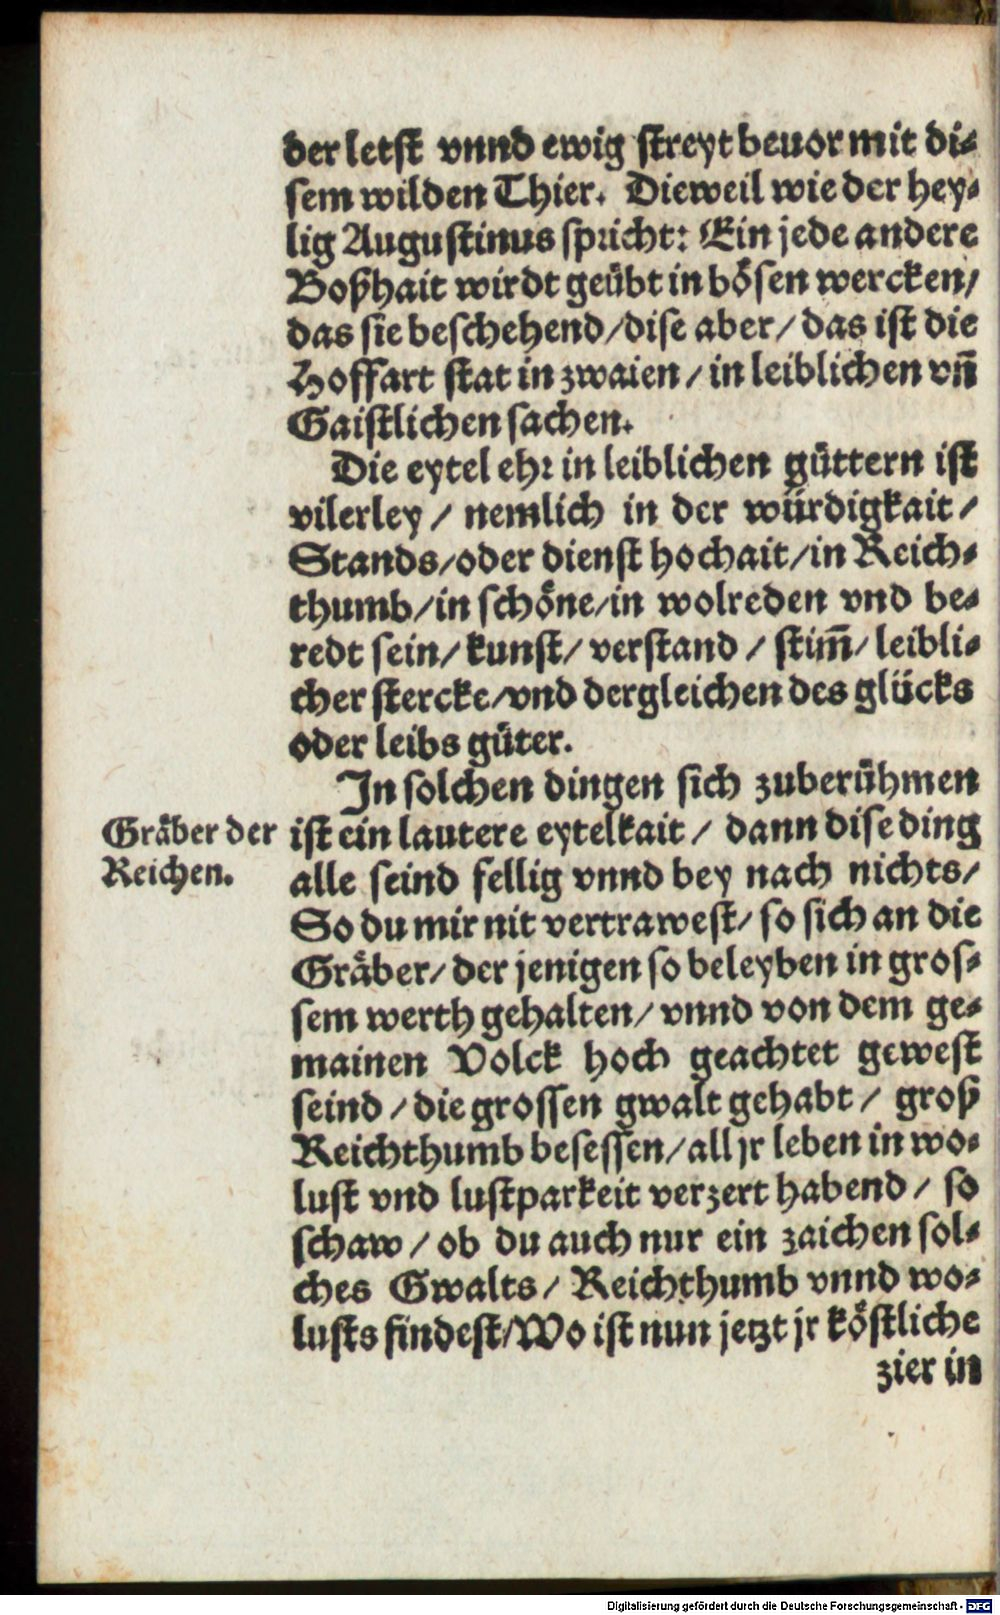 der letst vnnd ewig streyt beuor mit di⸗
sem wilden Thier. Dieweil wie der hey⸗
lig Augustinus spricht: Ein jede andere
Boßhait wirdt geübt in bösen wercken/
das sie beschehend/ dise aber/ das ist die
Hoffart stat in zwaien/ in leiblichen vn̄
Gaistlichen sachen.
Die eytel ehr in leiblichen güttern ist
vilerley/ nemlich in der würdigkait/
Stands/ oder dienst hochait/ in Reich⸗
thumb/ in schöne/ in wolreden vnd be⸗
redt sein/ kunst/ verstand/ stim̄/ leibli⸗
cher stercke/ vnd dergleichen des glücks
oder leibs güter.
In solchen dingen sich zuberühmen
Gräber der
Reichen.
ist ein lautere eytelkait/ dann dise ding
alle seind fellig vnnd bey nach nichts/
So du mir nit vertrawest/ so sich an die
Gräber/ der jenigen so beleyben in gros⸗
sem werth gehalten/ vnnd von dem ge⸗
mainen Volck hoch geachtet gewest
seind/ die grossen gwalt gehabt/ groß
Reichthumb besessen/ all jr leben in wo⸗
lust vnd lustparkeit verzert habend/ so
schaw/ ob du auch nur ein zaichen sol⸗
ches Gwalts/ Reichthumb vnnd wo⸗
lusts findest/ Wo ist nun jetzt jr köstliche
zier in
Digitalisierung gefördert durch die Deutsche Forschungsgemeinschaft - DFG